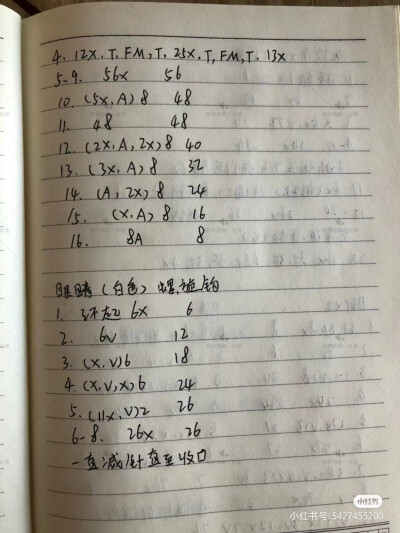 4. 12X, T, FM, T, 25X, T, FM, T, 13X
5-9. 56X 56
10. (5X, A) 8 48
11. 48 48
12. (2X, A, 2X) 8 40
13. (3X, A) 8 32
14. (A, 2X) 8 24
15. (X, A) 8 16
16. 8A 8
眼睛 (白色) 螺旋钩
1. 环起 6X 6
2. 6V 12
3. (X, V) 6 18
4. (X, V, X) 6 24
5. (11X, V) 2 26
6-8. 26X 26
一直减针直至收口
小红书
小红书号: 5427455200